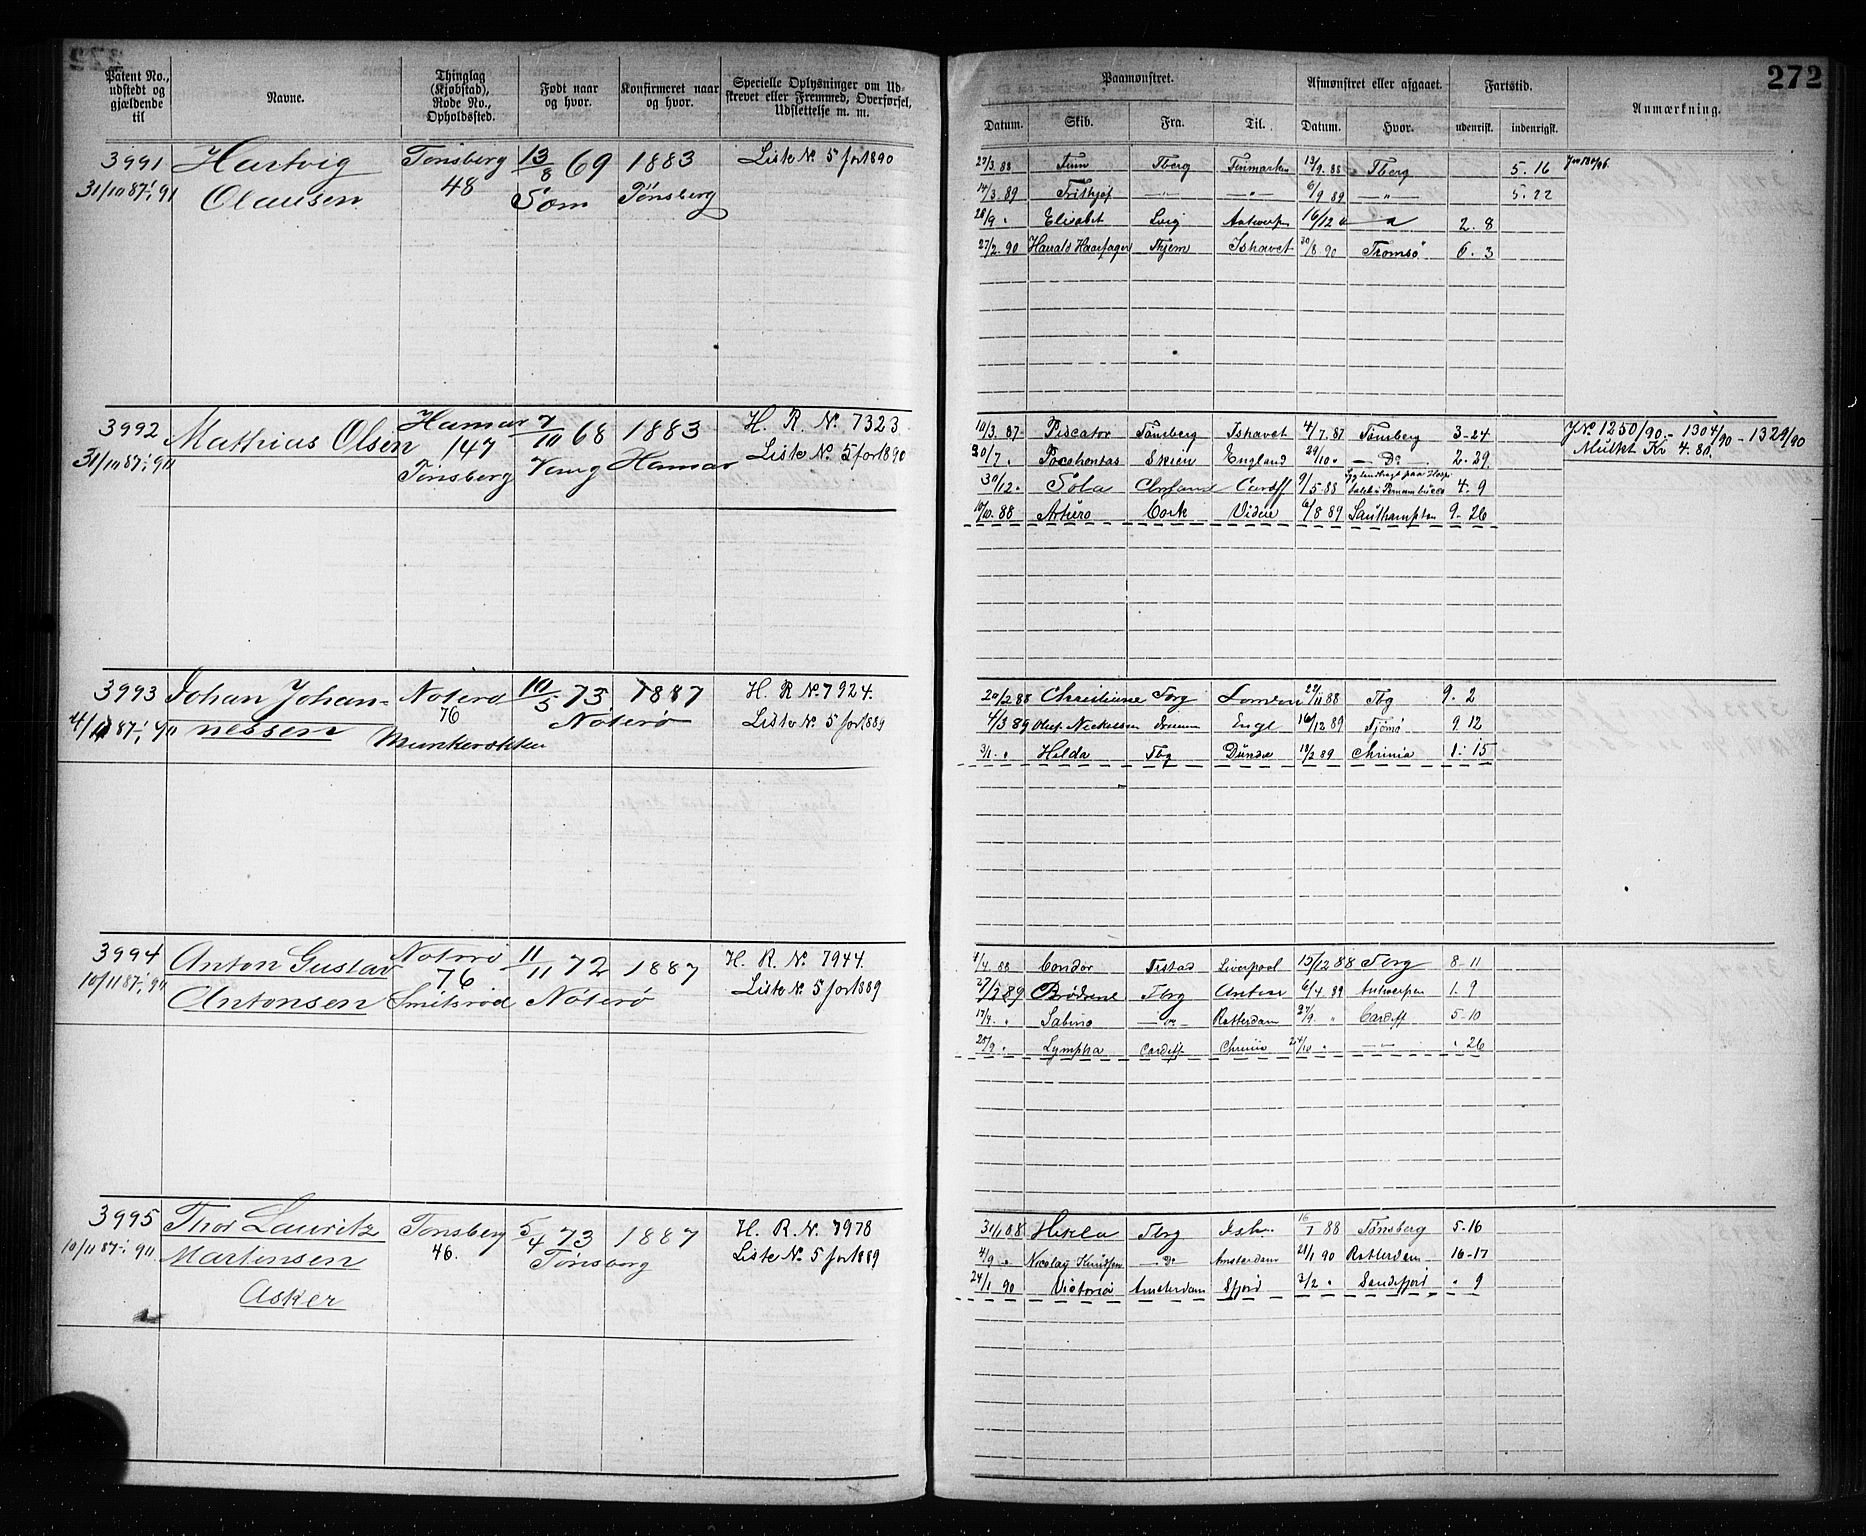 272
Patent No., udstedt og gjældende til
Navne.
Thinglag (Kjøbstad), Rode No., Opholdssted.
Født naar og hvor.
Konfirmeret naar og hvor.
Specielle Oplysninger om Udskrevet eller Fremmed, Overførsel, Udslettelse m. m.
Paamønstret.
Afmønstret eller afgaaet.
Fartstid.
Anmærkning.
Datum. Skib. Fra. Til. Datum. Hvor. udenrigsk. indenrigsk.
3991 Hartvig Tønsberg 13/8 69 1883 Liste No. 5 for 1890
31/10 87 91 Olausen 48 Sem Tønsberg
23/3.88 Funn Tberg Finmarken 13/9.88 Tberg 5.16
14/3.89 Frithjof —„— —„— 6/9 89 —„— 5.22
28/9 „ Elisabet Antwerpen 16/12 2.8
27/2.90 Harald Haarfager Ishavet 30/8 90 Tromsø 6.3
3992 Mathias Olsen Hamar 7/10 68 1883 H. R. No. 7323
31/10 87 91 147 Vang Hamar Liste No. 5 for 1890
Tønsberg
10/3.87 Piscator Tønsberg Ishavet 4/7.87 Tønsberg 3-24 JNo 1250/90 - 1304/90 - 1329/90
30/7 „ Pocahontas Skien England 29/10 „ — Do — 2-29 Mulkt Kr 4.80
30/12 „ Sola Cardiff 9/5 88 Pernambuco 4-9
10/10.88 Arturo Cork Videre 6/8 89 Southampton 9-26
3993 Johan Johan- Nøterø 10/5 73 1887 H. R. No. 7924.
4/11 87 91 nessen 76 Nøterø Liste No. 5 for 1889
Munkerekken
20/2 88 Christiane Tbrg London 29/11 88 Tbg 9.2
4/3 89 Oluf Nickelsen Engl 16/12 89 Tjømø 9 12
3/1 „ Hilda Tbg Dundee 18/2 89 Chrinia 1-15
3994 Anton Gustav Nøterø 11/11 72 1887 H. R. No. 7944.
10/11 87 91 Antonsen 76 Nøterø Liste No. 5 for 1889
Smitsrød
4/4.88 Condor Liverpool 15/12 88 Tbrg 8-11
Brødrene Tbrg 6/4.89 Antwerpen 1.9
17/4 „ Sabino —Do— Rotterdam 27/9 „ Cardiff 5-10
28/9 „ Lympha Cardiff Chrinia 24/10 „ —„— „ 26
3995 Thor Lauritz Tønsberg 5/4 73 1887 H. R. No. 7978
10/11 87 91 Martinsen 46. Tønsberg Liste No. 5 for 1889
Asker
31/1 88 Hekla Tbrg Ish. 16/7 88 Tønsberg 5-16
4/9 „ Nicolay Knudsen —Do— Amsterdam 21/1 90 Rotterdam 16-17
24/1 90 Victoria Amsterdam Sfjord 3/2 „ Sandefjord „ 9